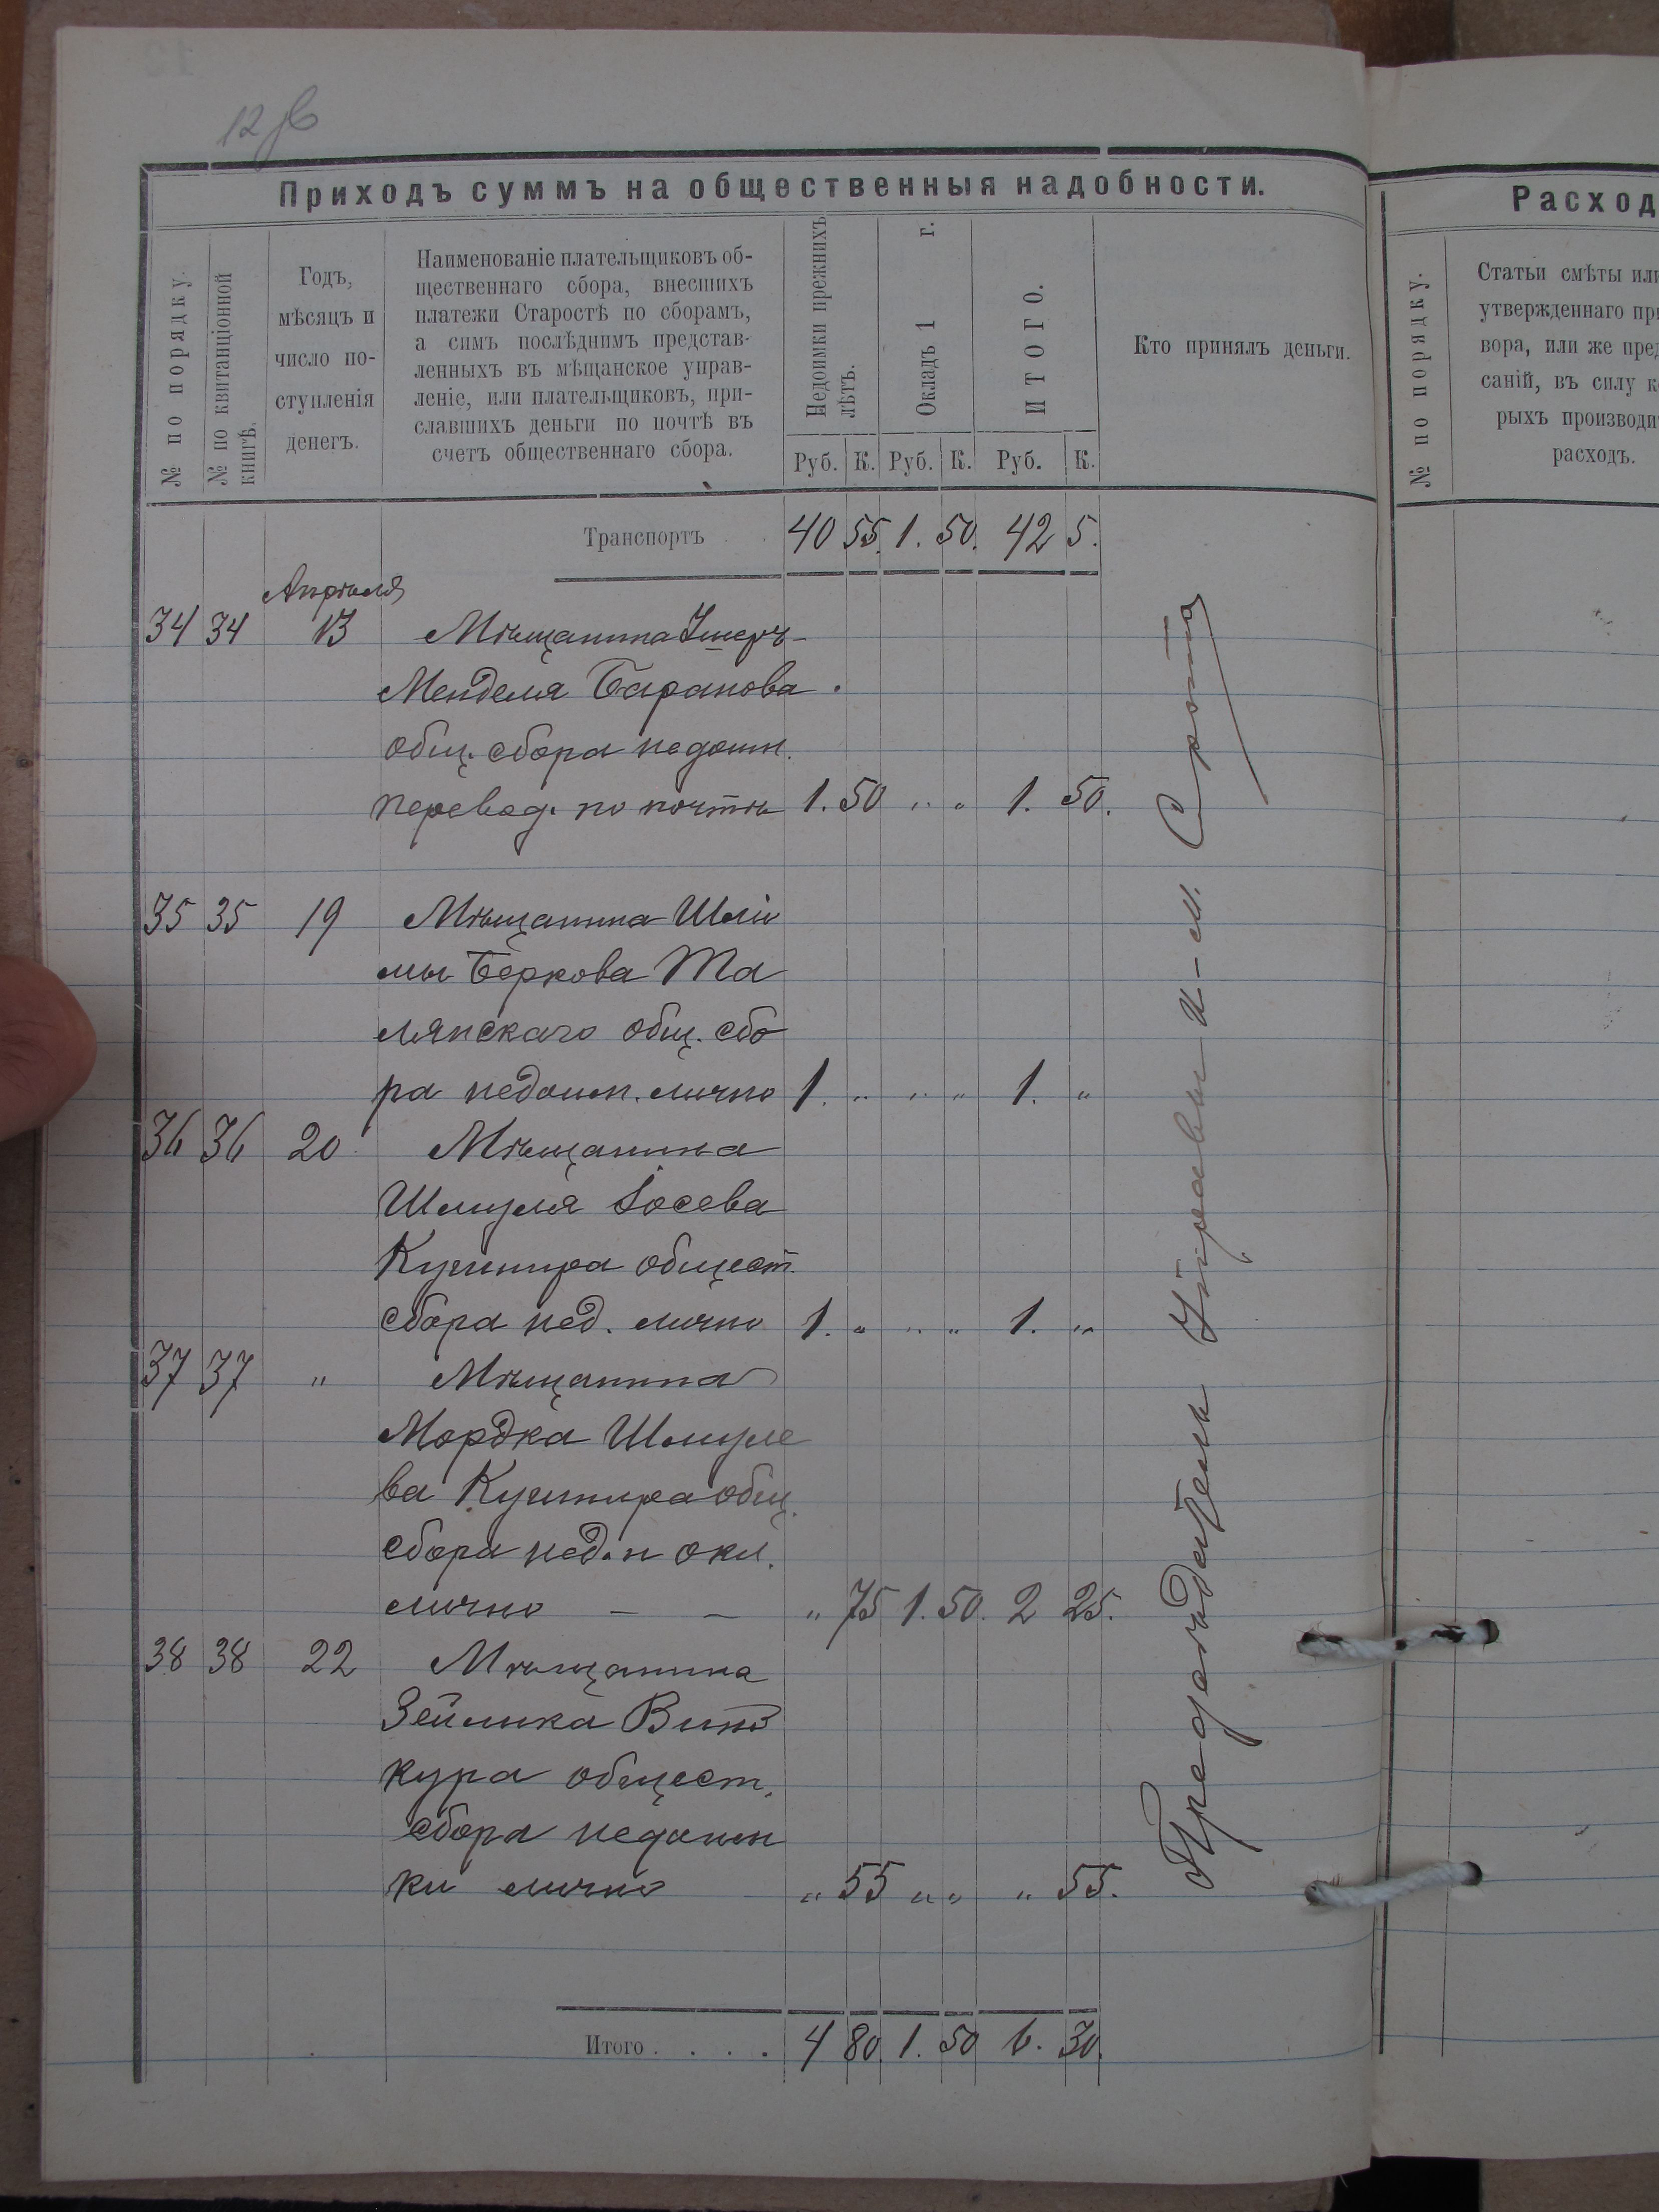 12 об
Приходъ суммъ на общественныя надобности.
№ по порядку.
№ по квитанціонной книгѣ.
Годъ,
мѣсяцъ и
число по-
ступленія
денегъ.
Наименованіе плательщиковъ об-
щественнаго сбора, внесшихъ
платежи Старостѣ по сборамъ,
а симъ послѣднимъ представ-
ленныхъ въ мѣщанское управ-
леніе, или плательщиковъ, при-
славшихъ деньги по почтѣ въ
счетъ общественнаго сбора.
Недоимки прежнихъ лѣтъ.
Окладъ 1 г.
ИТОГО.
Кто принялъ деньги.
Руб. К. Руб. К. Руб. К.
Транспортъ 40 55. 1. 50. 42 5.
Апрѣля
34 34 13 Мѣщанина
Менделя Баранова.
общ. сбора недоим.
перевод. по почтѣ 1. 50 „ „ 1. 50.
35 35 19 Мѣщанина Шліо
мы Беркова Та
лянскаго общ. сбо
ра недоим. лично 1. „ „ „ 1. „
36 36 20 Мѣщанина
Шмуля Іосева
Кушнира общест.
сбора нед. лично 1. „ „ „ 1. „
37 37 „ Мѣщанина
Мордка Шмуле
ва Кушнира общ.
сбора нед. и окл.
лично — — „ 75 1. 50. 2 25.
38 38 22 Мѣщанина
Зейлика Вино
кура общест.
сбора недоим
ки лично „ 55 „ „ „ 55.
Итого . . . . 4 80. 1. 50 6. 30.
Предсѣдатель Управы
Расход
№ по порядку.
Статьи смѣты или
утвержденнаго при
вора, или же пред
саній, въ силу к
рыхъ производи
расходъ.